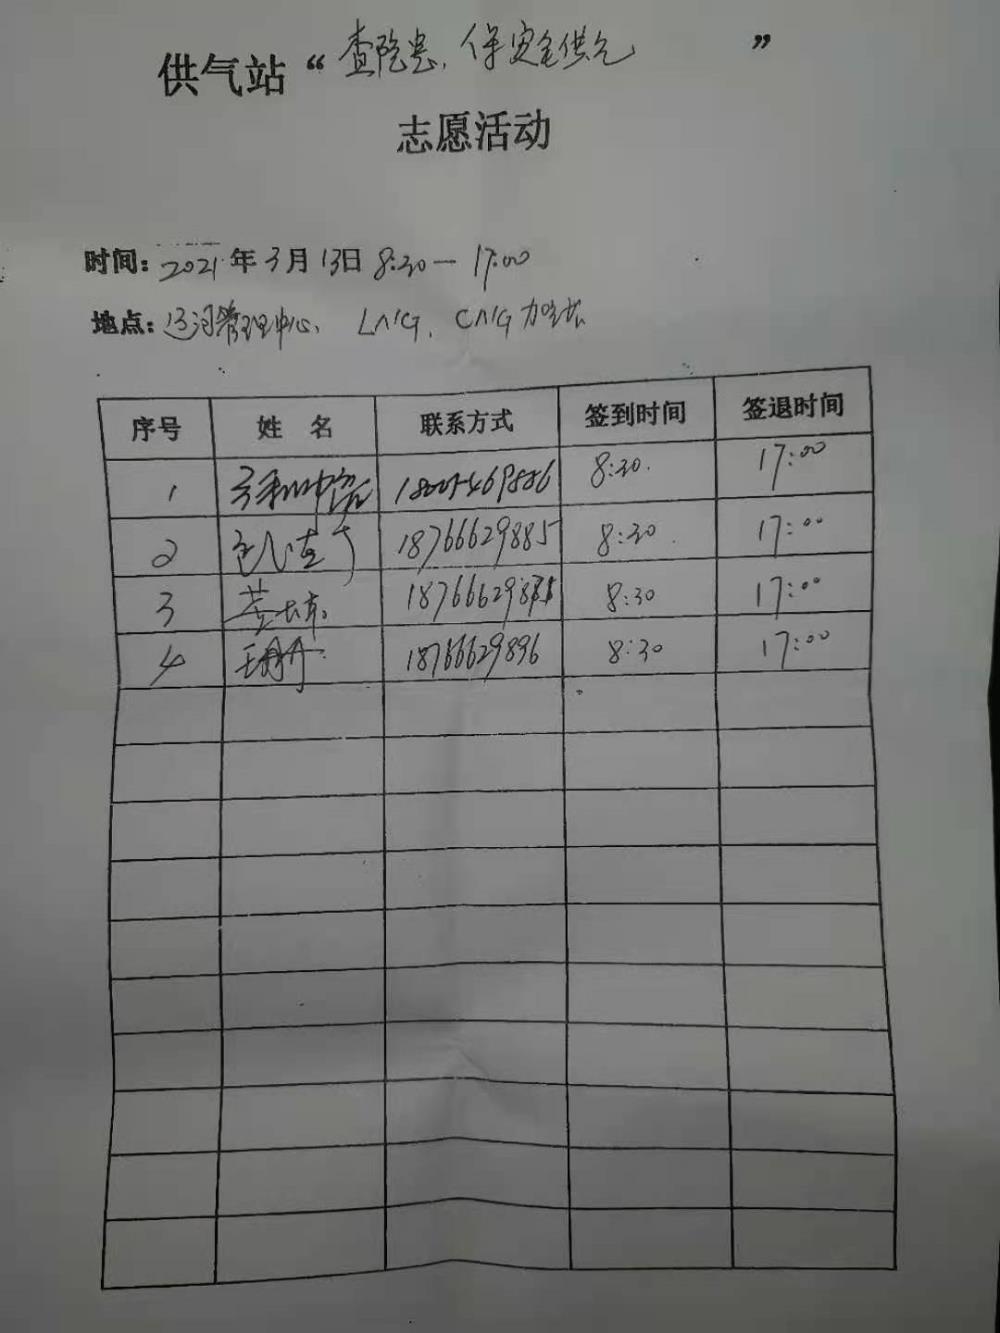 供气站“查隐患，保安全供气”
志愿活动
时间：2021年3月13日 8:30—17:00
地点：辽河管理中心、LNG、CNG加气站
序号 姓名 联系方式 签到时间 签退时间
1 8:30. 17:00
2 18766629885 8:30. 17:00
3 8:30 17:00
4 18766629896 8:30 17:00